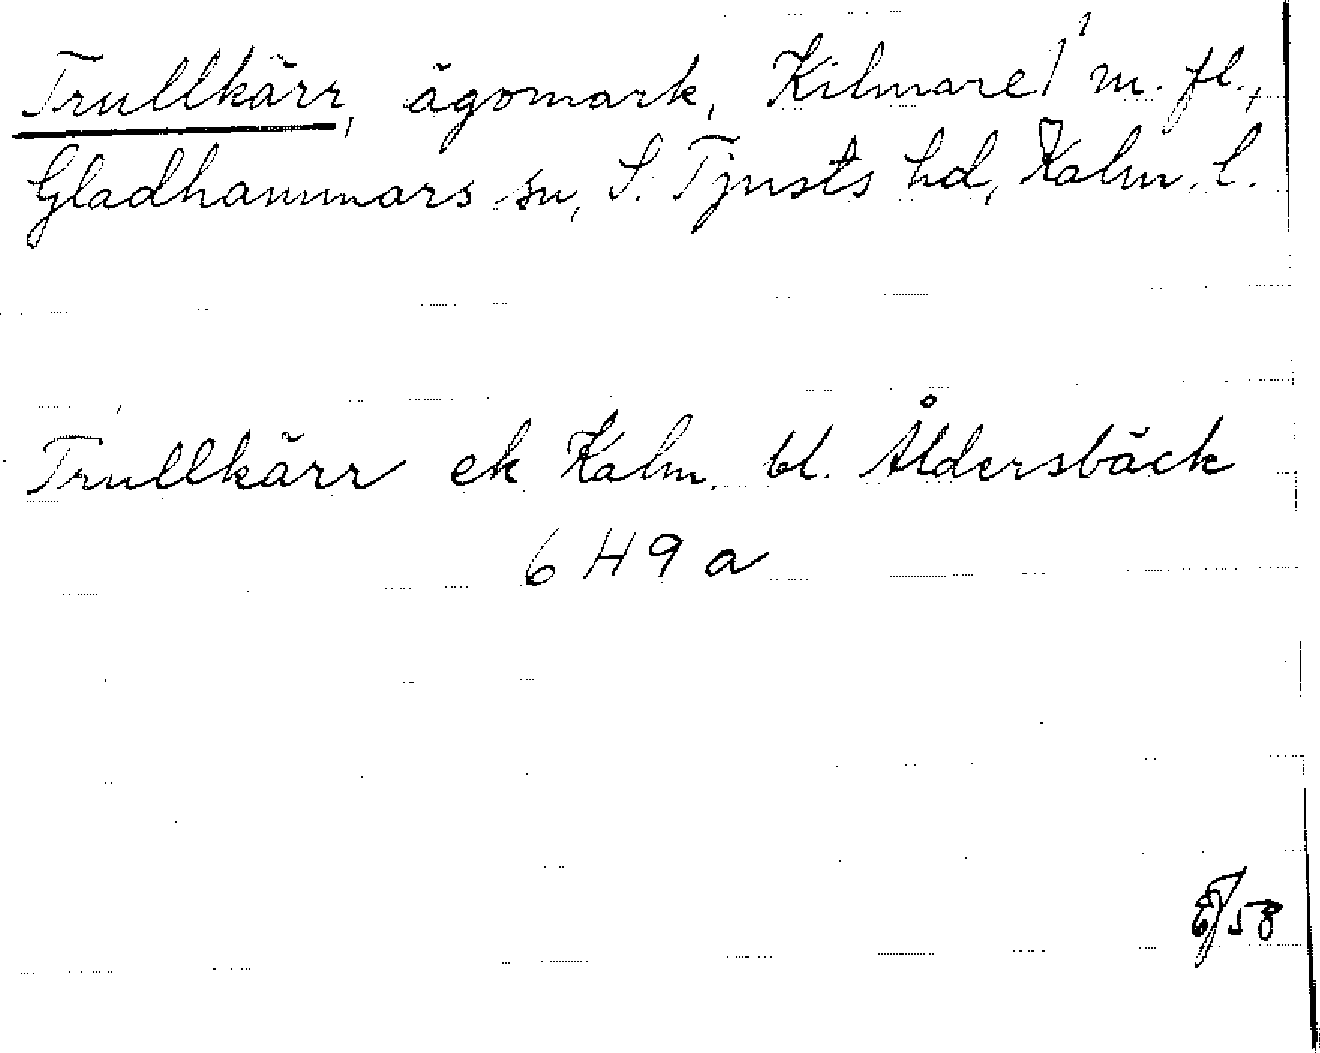 Trullkärr, ägomark, Kilmare 1¹ m. fl.,
Gladhammars sn, S. Tjusts hd, Kalm. l.
Trullkärr ek Kalm. bl. Åldersbäck
6 H 9 a
58